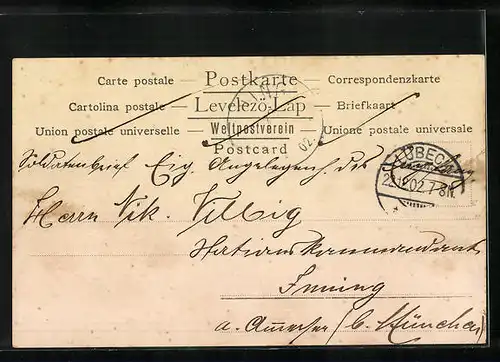 Carte postale — Postkarte — Correspondenzkarte
Cartolina postale — Levelező-Lap — Briefkaart
Union postale universelle — Weltpostverein — Unione postale universale
Postcard
Soldatenbrief Eig. Angelegenh. des
LÜBECK
02. 7-8N.
Herrn Vik. Villig
Stationskommandant
Inning
a. Ammersee (b. München)